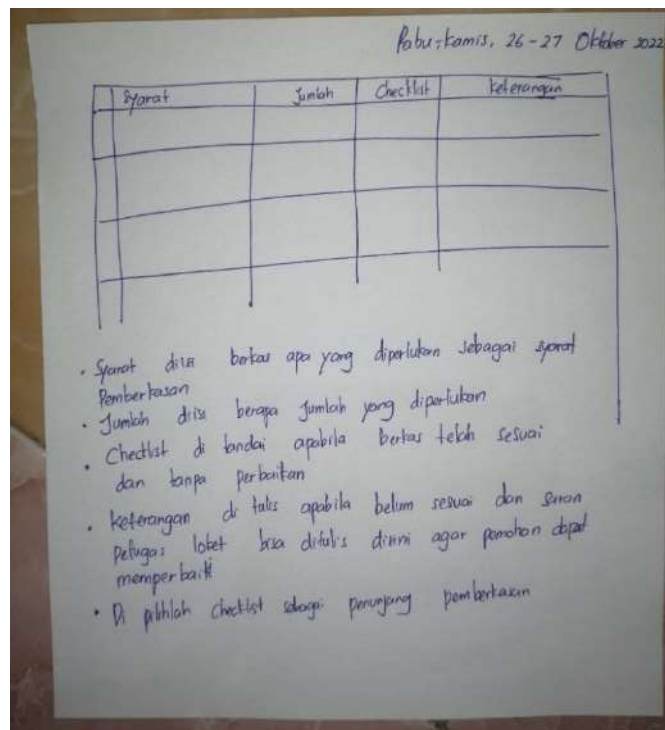 Rabu-Kamis, 26-27 Oktober 2022
Syarat Jumlah Checklist Keterangan
• Syarat diisi berkas apa yang diperlukan sebagai syarat
Pemberkasan
• Jumlah diisi berapa Jumlah yang diperlukan
• Checklist di tandai apabila berkas telah sesuai
dan tanpa perbaikan
• Keterangan di tulis apabila belum sesuai dan saran
Petugas loket bisa ditulis disini agar pemohon dapat
memperbaiki
• Di pilihlah checklist sebagai penunjang pemberkasan